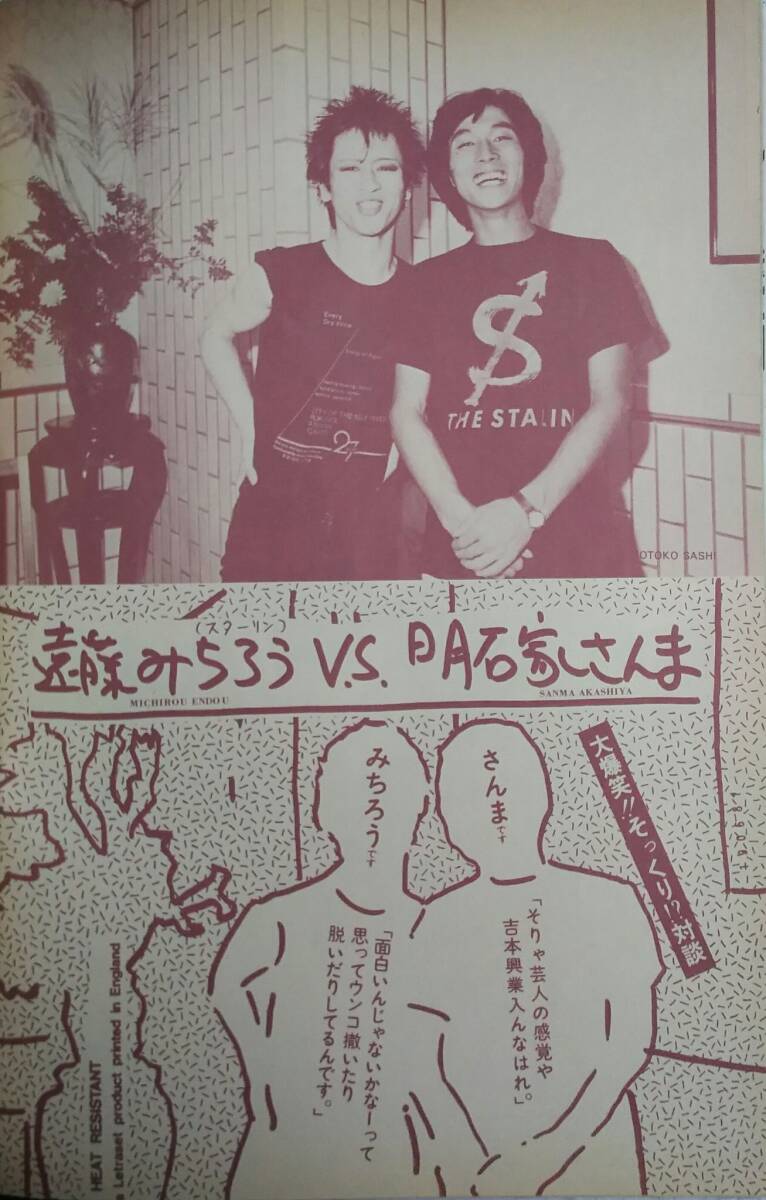 Every
THE STALIN
27
OTOKO SASHI
(スターリン)
遠藤みちろう V.S. 明石家さんま
MICHIROU ENDOU
SANMA AKASHIYA
大爆笑!!そっくり!?対談
さんまです
みちろうです
「そりゃ芸人の感覚や
吉本興業入んなはれ。」
「面白いんじゃないかなーって
思ってウンコ撒いたり
脱いだりしてるんです。」
HEAT RESISTANT
a Letraset product printed in England